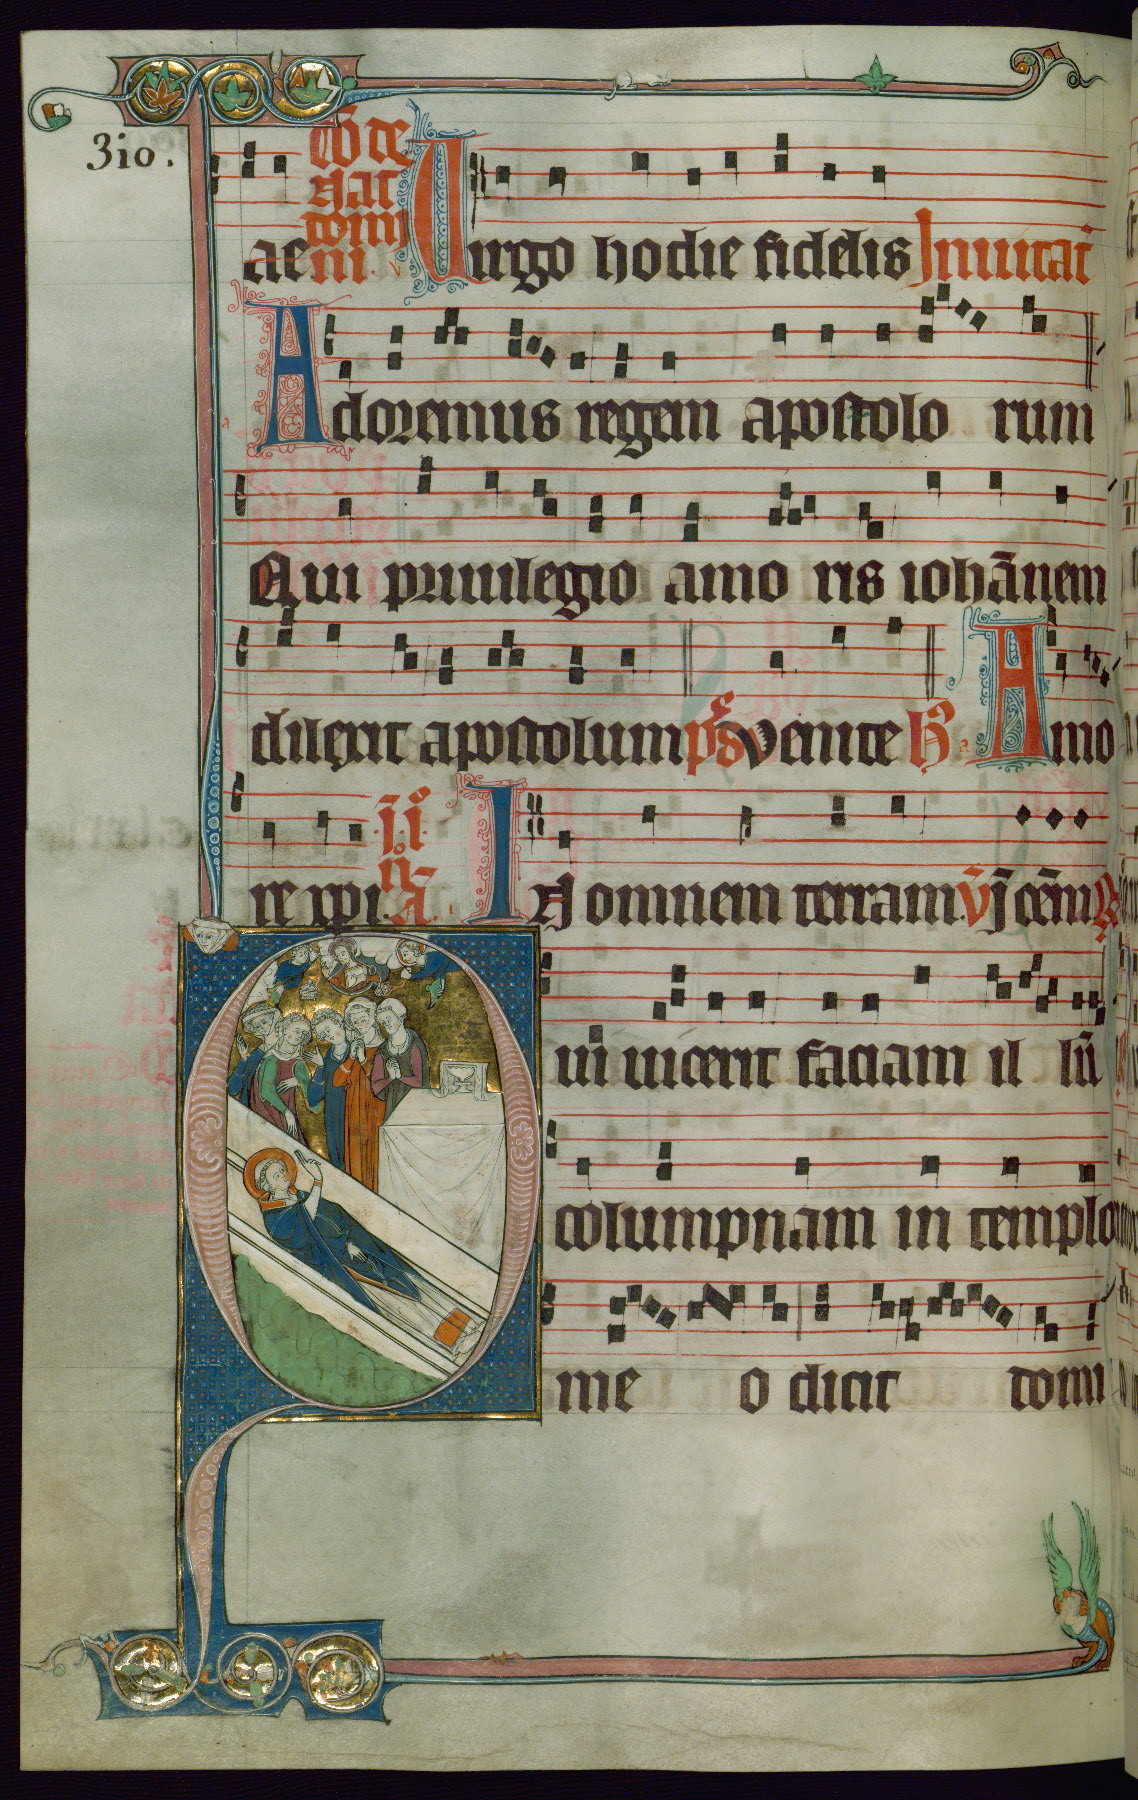 310.
ae Virgo hodie fidelis Inuitat̄
ni.
Adoremus regem apostolo rum
Qui priuilegio amo ris iohānem
dilexit apostolum ps̄ venite
Amo
re xpi. IN omnem terram
uī uicerit faciam il lū
columpnam in templo
me o dicit domi